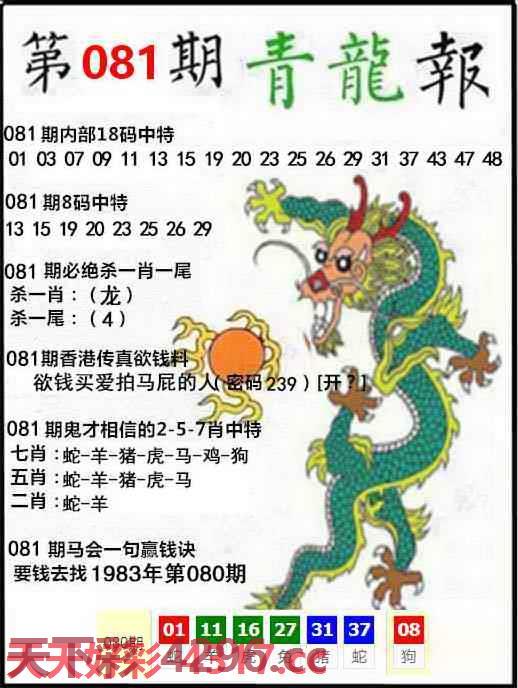 第081期青龍報
081期内部18码中特
01 03 07 09 11 13 15 19 20 23 25 26 29 31 37 43 47 48
081期8码中特
13 15 19 20 23 25 26 29
081 期必绝杀一肖一尾
杀一肖：（龙）
杀一尾：（4）
081期香港传真欲钱料
欲钱买爱拍马屁的人(密码239)[开?]
081期鬼才相信的2-5-7肖中特
七肖：蛇-羊-猪-虎-马-鸡-狗
五肖：蛇-羊-猪-虎-马
二肖：蛇-羊
081 期马会一句赢钱诀
要钱去找1983年第080期
080期 01 11 16 27 31 37 08
蛇 羊 虎 兔 猪 蛇 狗